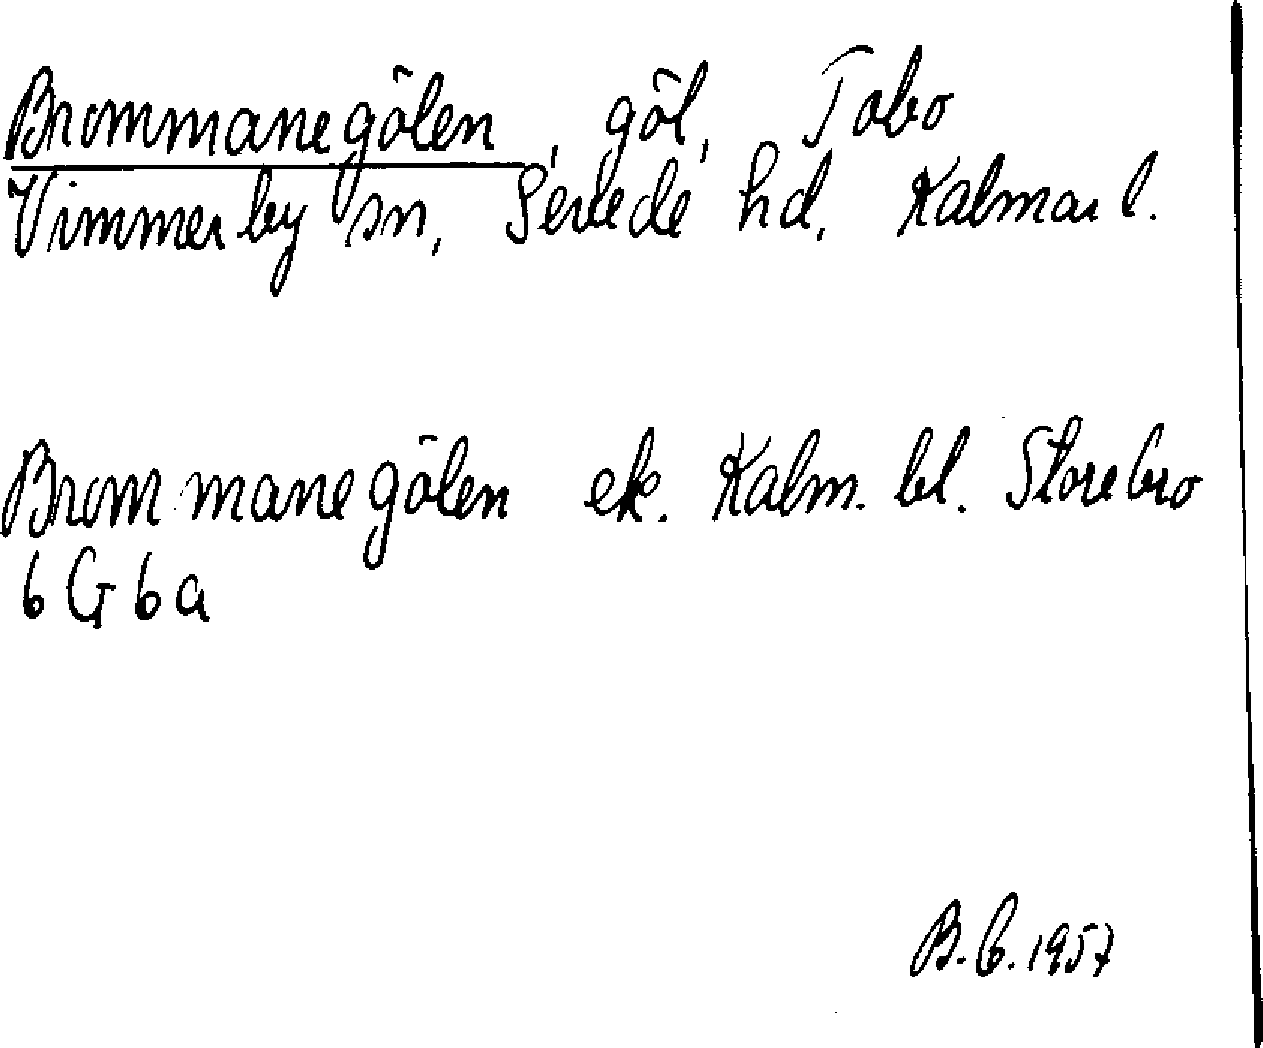 Brommanegölen, göl, Tobo
Vimmerby sn, Sevede hd, Kalmar l.
Brommanegölen ek. Kalm. bl. Storebro
6 G 6 a
B. C. 1957